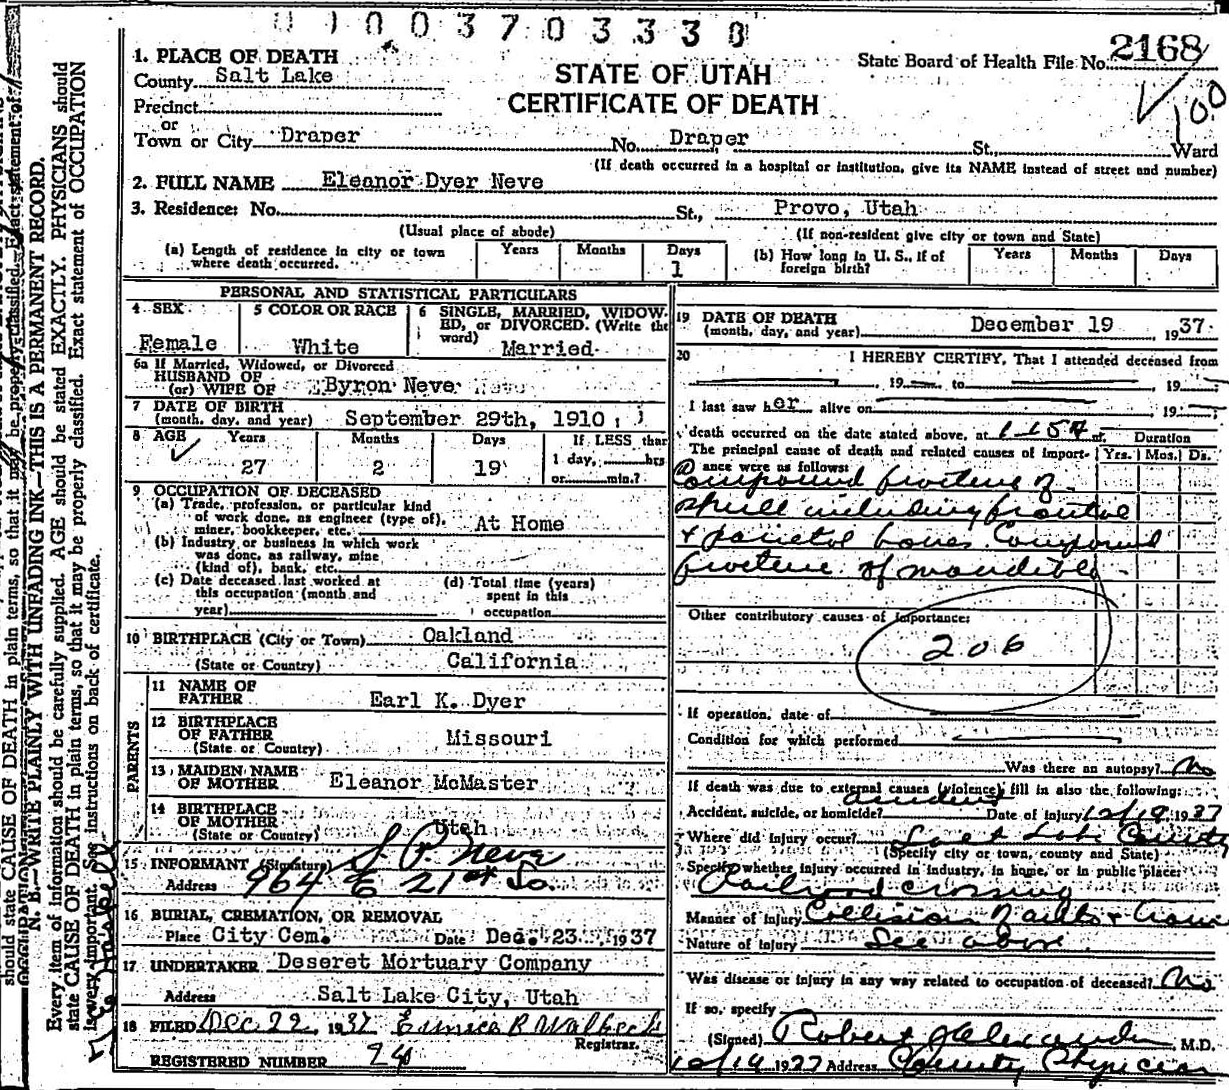 0 1 0 0 3 7 0 3 3 3 0
1. PLACE OF DEATH
County Salt Lake
Precinct
or
Town or City Draper
STATE OF UTAH
CERTIFICATE OF DEATH
State Board of Health File No. 2168
100
No. Draper St., Ward
(If death occurred in a hospital or institution, give its NAME instead of street and number)
2. FULL NAME Eleanor Dyer Neve
3. Residence: No. St., Provo, Utah
(Usual place of abode) (If non-resident give city or town and State)
(a) Length of residence in city or town where death occurred. Years Months Days 1
(b) How long in U. S., if of foreign birth? Years Months Days
PERSONAL AND STATISTICAL PARTICULARS
4 SEX Female
5 COLOR OR RACE White
6 SINGLE, MARRIED, WIDOWED, or DIVORCED. (Write the word) Married
6a If Married, Widowed, or Divorced
HUSBAND OF
(or) WIFE OF Byron Neve
7 DATE OF BIRTH
(month, day, and year) September 29th, 1910
8 AGE Years 27 Months 2 Days 19 If LESS than 1 day, hrs or min.?
9 OCCUPATION OF DECEASED
(a) Trade, profession, or particular kind
of work done, as engineer (type of), At Home
miner, bookkeeper, etc.
(b) Industry or business in which work
was done, as railway, mine
(kind of), bank, etc.
(c) Date deceased last worked at this occupation (month and year)
(d) Total time (years) spent in this occupation
10 BIRTHPLACE (City or Town) Oakland
(State or Country) California
PARENTS
11 NAME OF FATHER Earl K. Dyer
12 BIRTHPLACE OF FATHER (State or Country) Missouri
13 MAIDEN NAME OF MOTHER Eleanor McMaster
14 BIRTHPLACE OF MOTHER (State or Country) Utah
15 INFORMANT (Signature) S. P. Neve
Address 964 E 21st So.
16 BURIAL, CREMATION, OR REMOVAL
Place City Cem. Date Dec. 23 1937
17 UNDERTAKER Deseret Mortuary Company
Address Salt Lake City, Utah
18 FILED Dec 22, 1937 Eunice R
Registrar.
REGISTERED NUMBER 24
19 DATE OF DEATH
(month, day, and year) December 19 1937
20 I HEREBY CERTIFY, That I attended deceased from
, 19 to , 19
I last saw her alive on 19
death occurred on the date stated above, at 1 15 A m.
The principal cause of death and related causes of importance were as follows: Duration Yrs. Mos. Ds.
Compound fracture of
skull including frontal
& parietal bones. Compound
fracture of mandible
Other contributory causes of importance:
206
If operation, date of
Condition for which performed
Was there an autopsy? No
If death was due to external causes (violence) fill in also the following:
Accident, suicide, or homicide? accident Date of injury 12/19 1937
Where did injury occur? Salt Lake County
(Specify city or town, county and State)
Specify whether injury occurred in industry, in home, or in public place:
Railroad crossing
Manner of injury Collision of auto & train
Nature of injury See above
Was disease or injury in any way related to occupation of deceased? No
If so, specify
(Signed) Robert Alexander M.D.
12/19 1937 Address County Physician
N. B.—WRITE PLAINLY WITH UNFADING INK—THIS IS A PERMANENT RECORD.
Every item of information should be carefully supplied. AGE should be stated EXACTLY. PHYSICIANS should
state CAUSE OF DEATH in plain terms, so that it may be properly classified. Exact statement of OCCUPATION
is very important. See instructions on back of certificate.